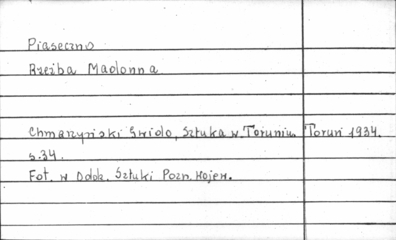 Piaseczno
Rzeźba Madonna
Chmarzyński Gwido, Sztuka w Toruniu Toruń 1934.
s.34.
Fot. w Oddz. Sztuki Pozn. Wojew.